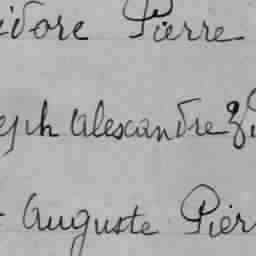 idore Pierre
eph Alexandre
Auguste Pier